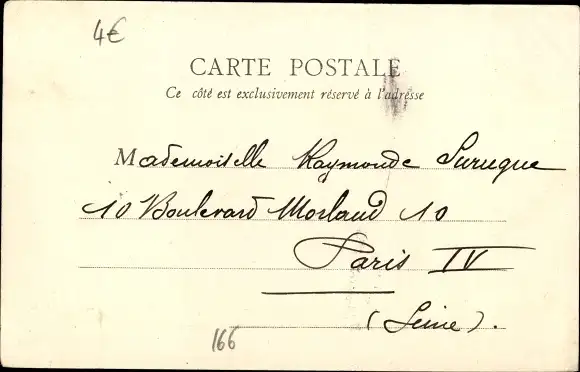 4€
CARTE POSTALE
Ce côté est exclusivement réservé à l'adresse
Mademoiselle Raymonde Surugue
10 Boulevard Morland 10
Paris IV
(Seine).
166